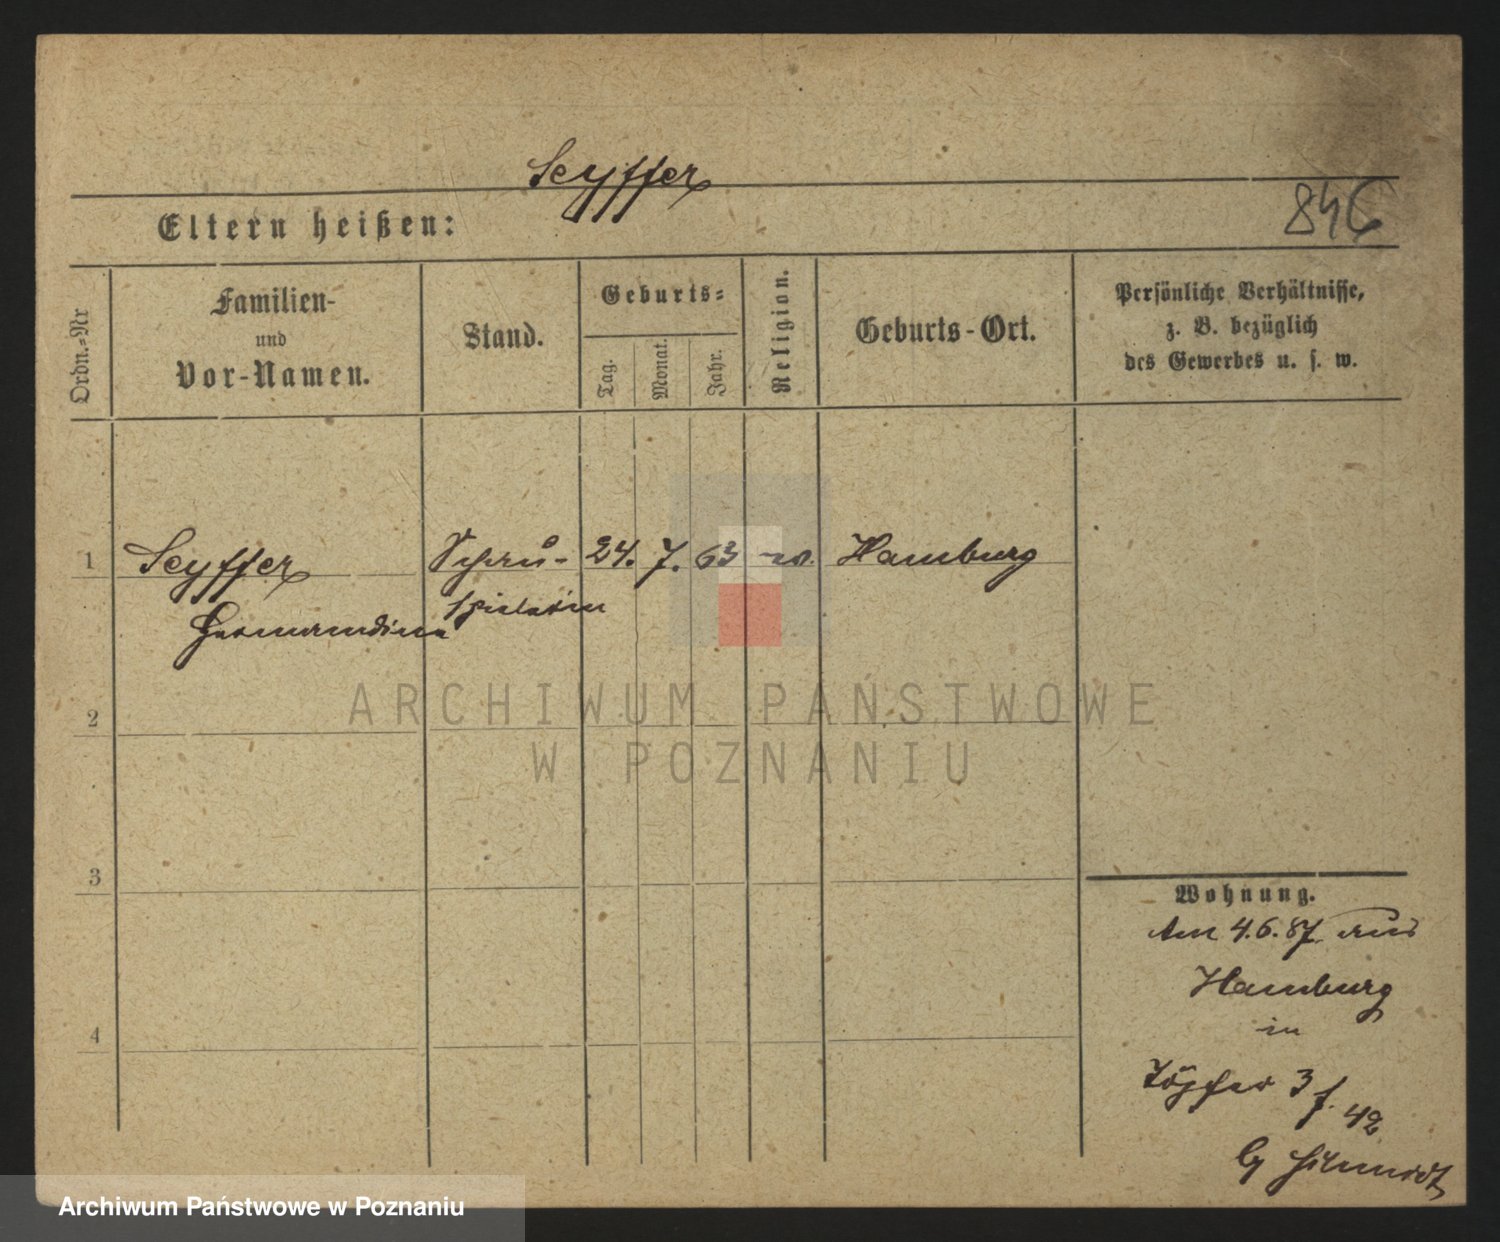 Seyffer
846
Eltern heißen:
Ordn.-Nr
Familien-
und
Vor-Namen.
Stand.
Geburts-
Tag.
Monat.
Jahr.
Religion.
Geburts-Ort.
Persönliche Verhältnisse,
z. B. bezüglich
des Gewerbes u. s. w.
1 Seyffer Schau- 24. 7. 63 Hamburg
spielerin
2
3
4
Wohnung.
Am 4.6.87 aus
Hamburg
in
3
42
ARCHIWUM PAŃSTWOWE
W POZNANIU
Archiwum Państwowe w Poznaniu